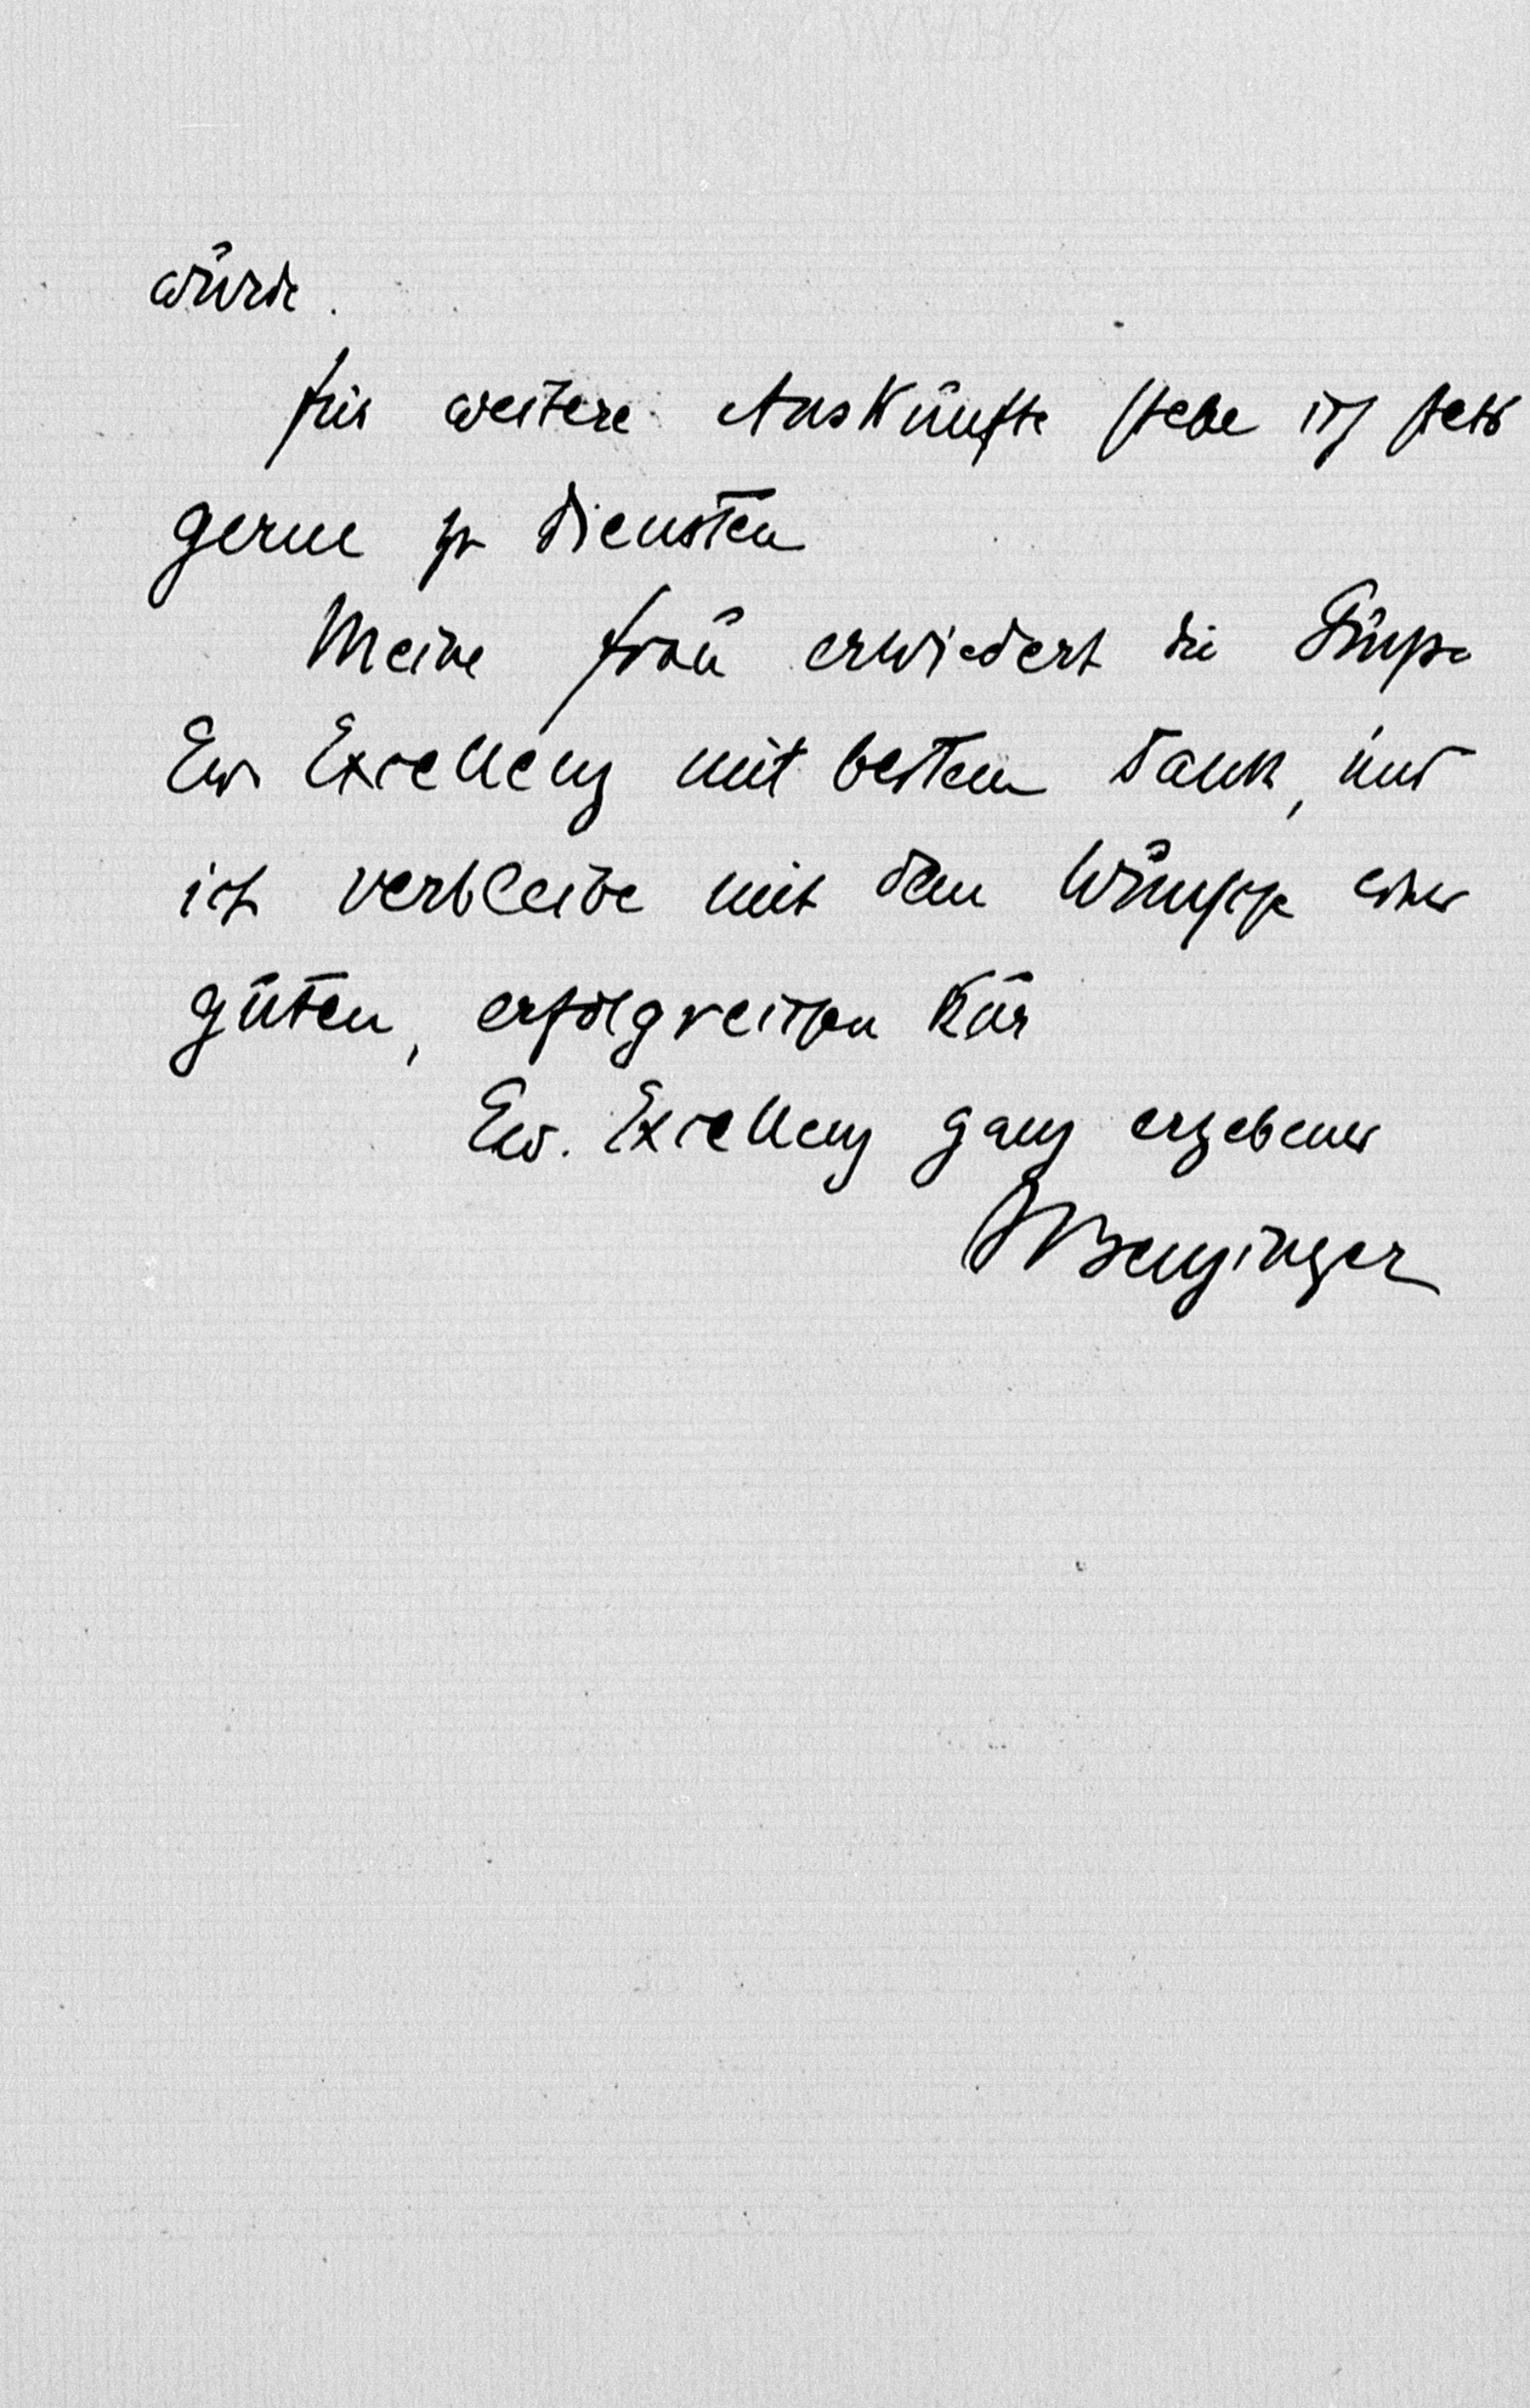 würde.
Für weitere Auskünfte stehe ich stets
gerne zu Diensten
Meine Frau erwiedert die Grüße
Ew. Exzellenz mit bestem Dank, und
ich verbleibe mit dem Wunsche einer
guten, erfolgreichen Kur
Ew. Exzellenz ganz ergebener
Benzinger